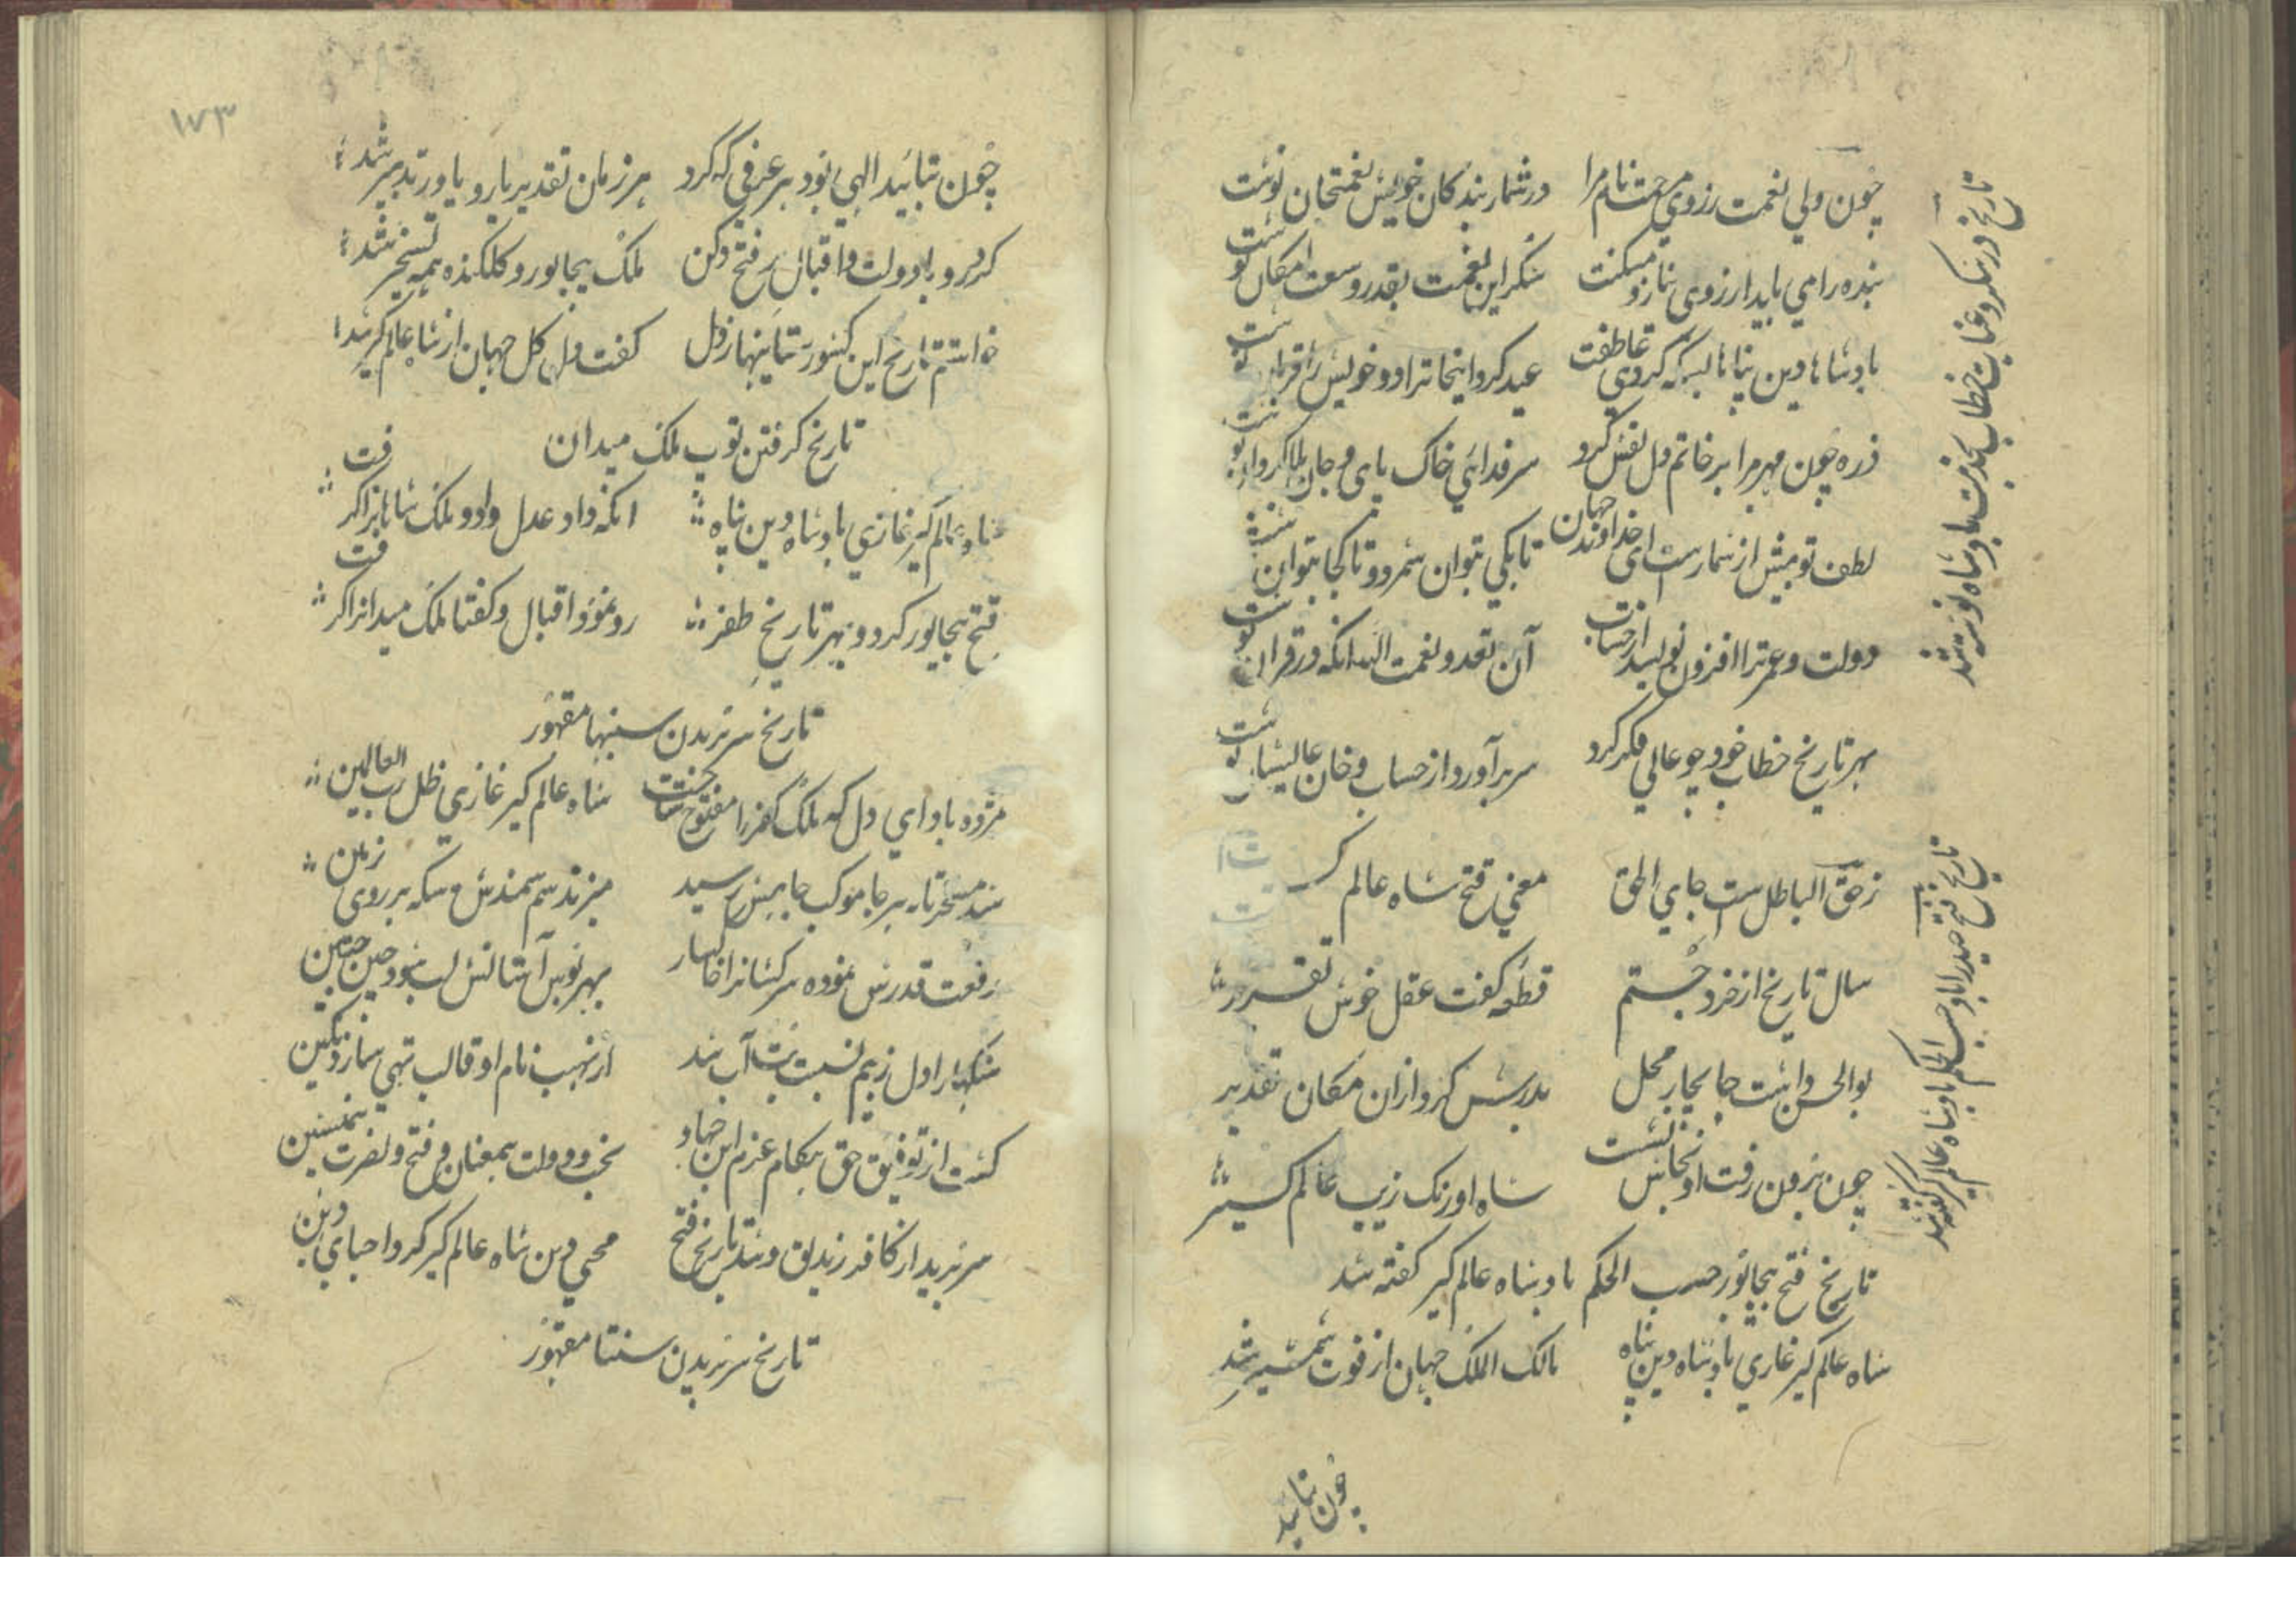 چون ولی نعمت ز روی مرحمت نام مرا در شمار بندکان خویش نعمتخان نوشت
بنده را می باید از روی نیاز و مسکنت شکر این نعمت بقدر وسعت امکان نوشت
بادشاها دین پناها بسکه کردی عاطفت
ذره چون مهر مرا بر خاتم دل نقش کرد سر فدای خاک پای و جان
لطف تو بیش از شمارست ای خداوند جهان تا بکی بتوان شمرد و تا کجا بتوان نوشت
دولت و عمر ترا افزون نویسد از حساب آن نقد و نعمت انکه در قران نوشت
بهر تاریخ خطاب خود چو عالی فکر کرد سر برآورد از حساب و خان عالیشان نوشت
تاریخ در شکر و عنایت خطاب بخدمت بادشاه نوشته شد
زهق الباطل ست جای الحق معنی فتح شاه عالم کیر
سال تاریخ از خرد جستم قطعه کفت عقل خوش تقریر
بوالحسن داشت جا بچار محل بدرش کرد از ان مکان تقدیر
چون برون رفت او بجاش نشست شاه اورنک زیب عالم کیر
تاریخ فتح حیدراباد حسب الحکم بادشاه عالم کیر کفته شد
تاریخ فتح بیجاپور حسب الحکم بادشاه عالم کیر کفته شد
شاه عالم کیر غازی بادشاه دین پناه مالک الملک جهان از قوت شمشیر شد
چون بتایید
١٧٣
چون بتایید الهی بود هر عزمی که کرد هر زمان تقدیر یار و یاور تدبیر شد
کرد رو با دولت و اقبال بر فتح دکن ملک بیجاپور و کلکنده همه تسخیر شد
خواستم تاریخ این کشور ستانیها ز دل کفت دل کل جهان از شاه عالم کیر شد
تاریخ کرفتن توپ ملک میدان
شاه عالم کیر غازی بادشاه دین پناه انکه داد عدل داد و ملک شاهانرا کرفت
فتح بیجاپور کرد و بهر تاریخ ظفر رو نمود اقبال و کفتا ملک میدانرا کرفت
تاریخ سر بریدن سنبها مقهور
مژده باد ای دل که ملک کفر را مفتوح ساخت شاه عالم کیر غازی ظل رب العالمین
شد مسخر تا بهر جا موکب جاهش رسید میزند سم سمندش سکه بر روی زمین
رفعت قدرش نموده سرکشانرا خاکسار بهر بوس آستانش لب شود چین جبین
سنکها را دل ز بیم نسبت بت آب شد از نهیب نام او قالب تهی سازد نکین
کشت از توفیق حق هنکام عزم این جهاد بخت و دولت همعنان و فتح و نصرت همنشین
سر برید از کافر زندیق و شد تاریخ فتح محی دین شاه عالم کیر کرد احیای دین
تاریخ سر بریدن سنتا مقهور